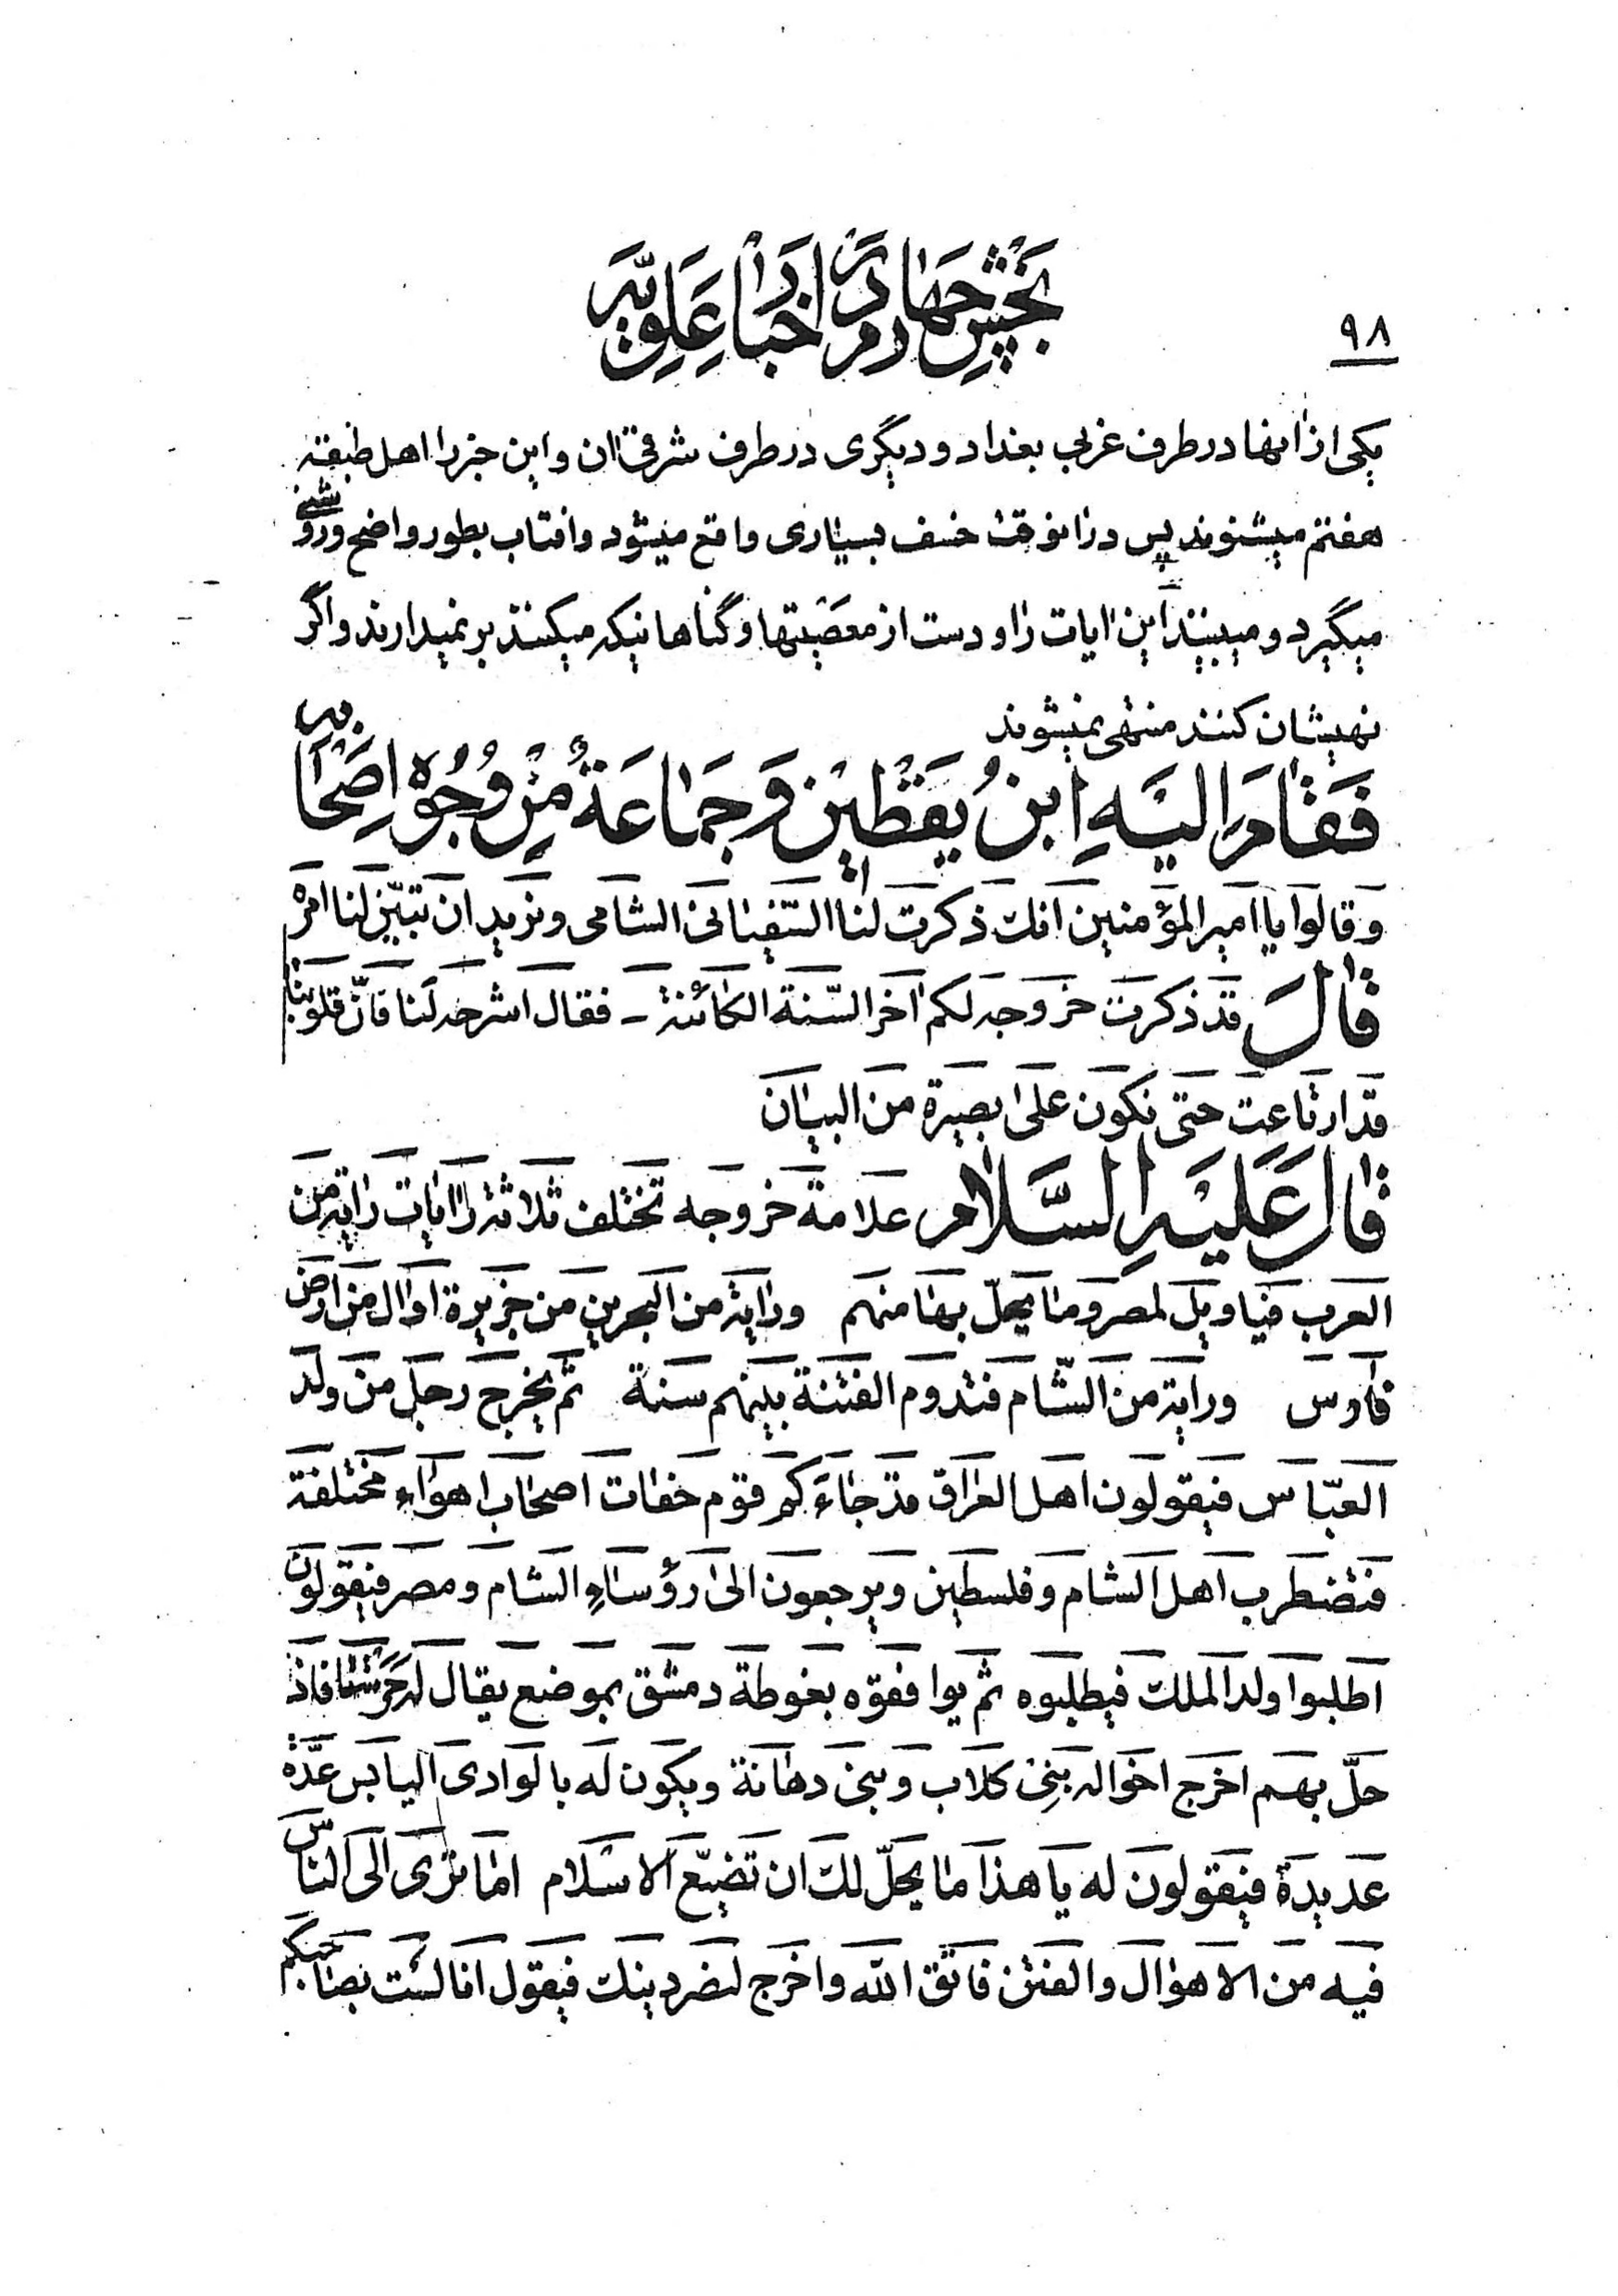 ۹۸
بخش چهارم در اخبار علویه
یکی از انها در طرف غربی بغداد و دیگری در طرف شرقی ان و این خبر را اهل طبقه
هفتم میشنوند پس در انوقت خسف بسیاری واقع میشود و افتاب بطور واضح و روشنی
میگیرد و میبینند این ایات را و دست از معصیتها و گناهانیکه میکنند بر نمیدارند و اگر
نهیشان کنند منتهی نمیشوند
فَقٰامَ اِلَیْهِ ابنُ یَقْطین وَ جَمٰاعَةٌ مِنْ وُجُوْهِ اَصْحٰابِه
و قالوا یا امیر المؤمنین انك ذكرت لنا السّفیانی الشامی و نرید ان تبیّن لنا امره
قٰالَ قد ذكرت خروجه لكم اخر السّنة الكائنة ـ فقال اشرحه لنا فانّ قلوبنا
قد ارتاعت حتى نكون على بصیرة من البیان
قٰالَ عَلَیْهِ السَّلٰام علامة خروجه تختلف ثلاثة رایات رایة من
العرب فیا ویل لمصر و ما یحلّ بها منهم و رایة من البحرین من جزیرة اوال من ارض
فارس و رایة من الشّام فتدوم الفتنة بینهم سنة ثم یخرج رجل من ولد
العبّاس فیقولون اهل العراق قد جاءكم قوم حفات اصحاب اهواء مختلفة
فتضطرب اهل الشام و فلسطین و یرجعون الى رؤساء الشام و مصر فیقولون
اطلبوا ولد الملك فیطلبوه ثم یوافقوه بغوطة دمشق بموضع یقال له حرشتا فاذا
حلّ بهم اخرج اخواله بنی كلاب و بنی دهانة و یكون له بالوادی الیابس عدّة
عدیدة فیقولون له یا هذا ما یحلّ لك ان تضیّع الاسلام اما ترى الى الناس
فیه من الاهوال و الفتن فاتق الله و اخرج لنصر دینك فیقول انا لست بصاحبكم